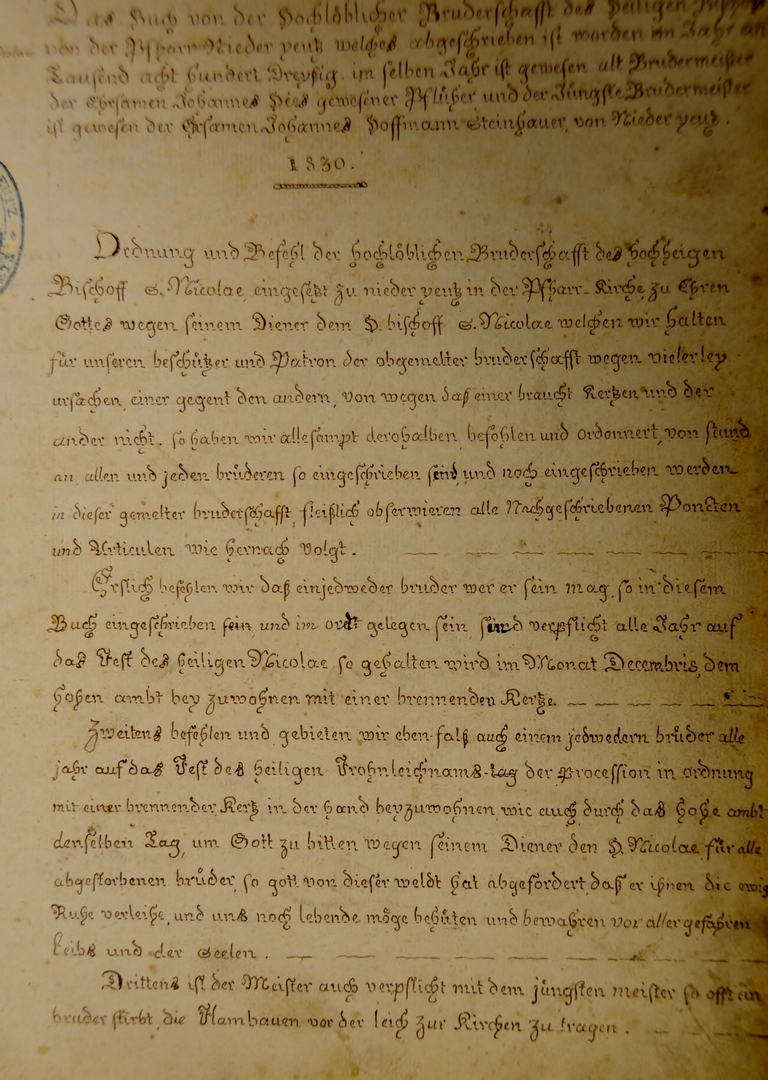 Das Buch von der Hochlöblicher Bruderschafft des Heiligen
von der Pfharr Nieder yeutz welches abgeschrieben ist worden im Jahr an
Tausend acht hundert Dreyßig. im selben Jahr ist gewesen alt Brudermeister
der Ehrsamen Johannes Hees gewesener Pflüher und der Jüngste Brudermeister
ist gewesen der Ehrsamen Johannes Hoffmann Steinhauer, von Nieder yeutz.
1830.
Ordnung und Befehl der hochlöblichen Bruderschafft des hochheigen
Bischoff S. Nicolae, eingesetzt zu nieder yeutz in der Pfharr-Kirche, zu Ehren
Gottes wegen seinem Diener dem H. bischoff S. Nicolae welchen wir halten
für unseren beschützer und Patron der obgemelter bruderschafft wegen vielerley
ursachen, einer gegent den andern, von wegen daß einer braucht Kertzen und der
ander nicht. so haben wir allesampt derohalben, befohlen und ordonnert, von stund
an, allen und jeden brüderen so eingeschrieben sind, und noch eingeschrieben werden
in dieser gemelter bruderschafft, fleißlich observieren alle Nachgeschriebenen Poncten
und Articulen wie hernach Volgt.
Erslich befehlen wir daß einjedweder bruder wer er sein mag, so in diesem
Buch eingeschrieben sein, und im ordt gelegen sein, sind verpflicht alle Jahr auf
das Fest des heiligen Nicolae so gehalten wird im Monat Decembris, dem
hohen ambt bey zuwohnen mit einer brennenden Kertze.
Zweitens befehlen und gebieten wir eben-falß auch einem jedwedern brüder alle
jahr auf das Fest des heiligen Frohnleichnams-tag der Procession in ordnung
mit einer brennender Kertz in der hand beyzuwohnen, wie auch durch das hohe ambt
denselben Tag, um Gott zu bitten wegen seinem Diener den H. Nicolae, für alle
abgestorbenen brüder, so gott von dieser weldt hat abgefordert, daß er ihnen die ewig
Ruhe verleihe, und uns noch lebende möge behüten und bewahren vor aller gefahren
Leibs und der Seelen.
Drittens ist der Meister auch verpflicht mit dem jüngsten meister so offt ein
bruder stirbt, die Flambauen vor der leich zur Kirchen zu tragen.